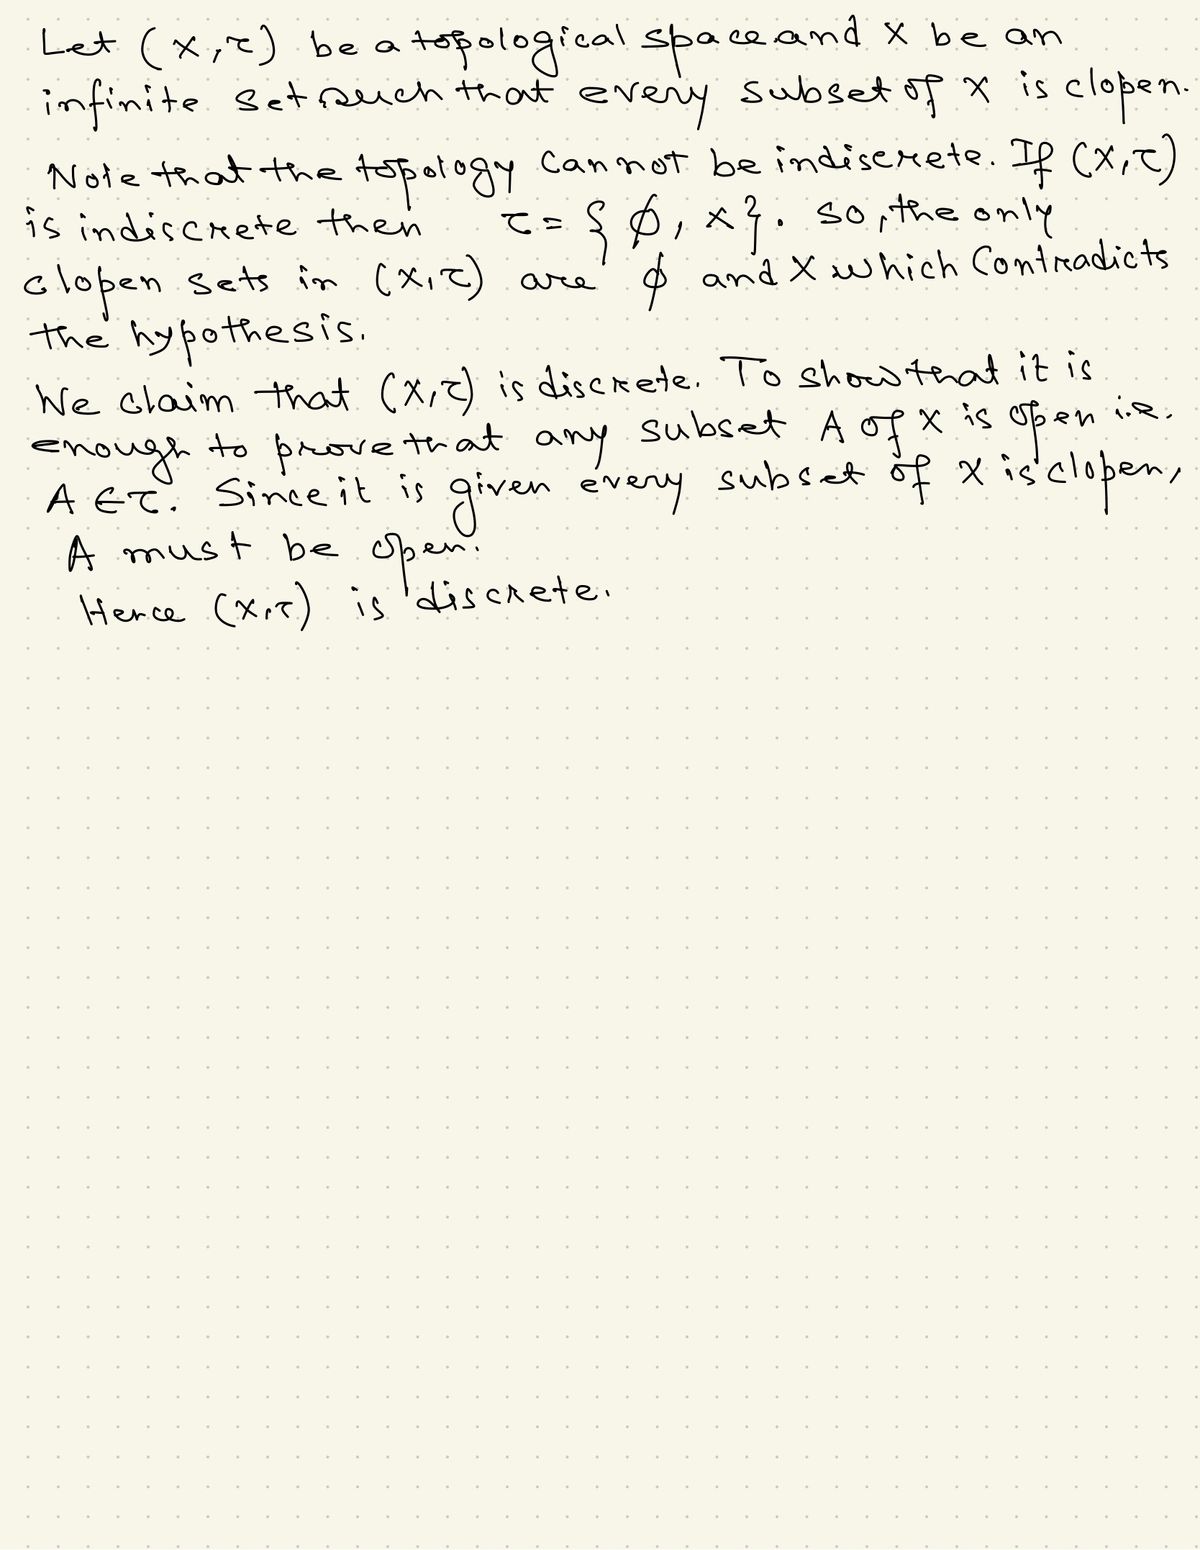 Let (X,τ) be a topological space and X be an
infinite set such that every subset of X is clopen.
Note that the topology cannot be indiscrete. If (X,τ)
is indiscrete then τ = {ϕ, X}. So, the only
clopen sets in (X,τ) are ϕ and X which Contradicts
the hypothesis.
We claim that (X,τ) is discrete. To show that it is
enough to prove that any subset A of X is open i.e.
A ∈ τ. Since it is given every subset of X is clopen,
A must be open.
Hence (X,τ) is discrete.